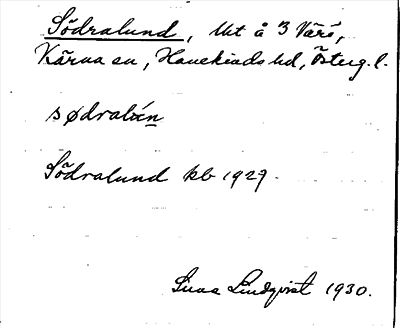 Södralund, Ut å 3 Värö,
Kärna sn, Hanekinds hd, Österg. l.
sødralún
Södralund kb 1929.
Suna Lindqvist 1930.